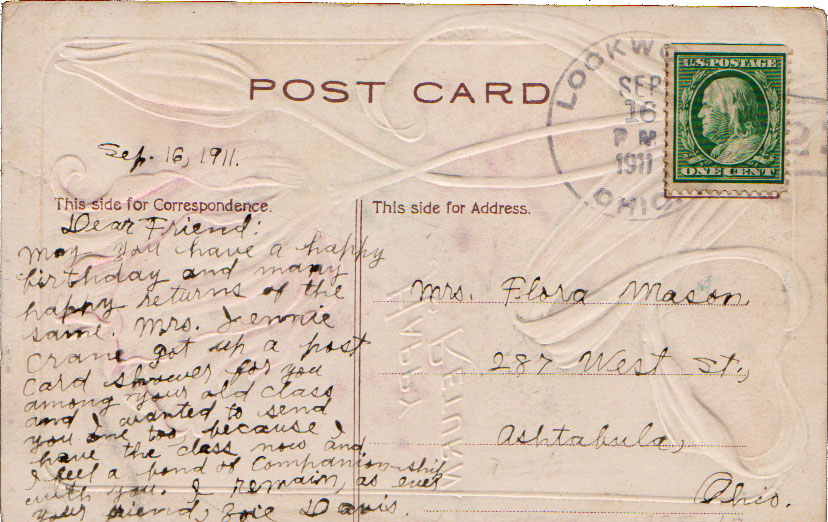 POST CARD
LOCKWO
SEP
16
P M
1911
OHIO
U.S. POSTAGE
ONE CENT
Sep. 16, 1911.
This side for Correspondence.
Dear Friend:
May you have a happy
birthday and many
happy returns of the
same. Mrs. Jennie
Crane got up a post
card shower for you
among your old class
and I wanted to send
you one too, because I
have the class now and
I feel a bond of Companion-ship
with you. I remain, as ever
your friend, Zoie Davis.
This side for Address.
Mrs. Flora Mason
287 West St.,
Ashtabula,
Ohio.
HAPPY
RETURN